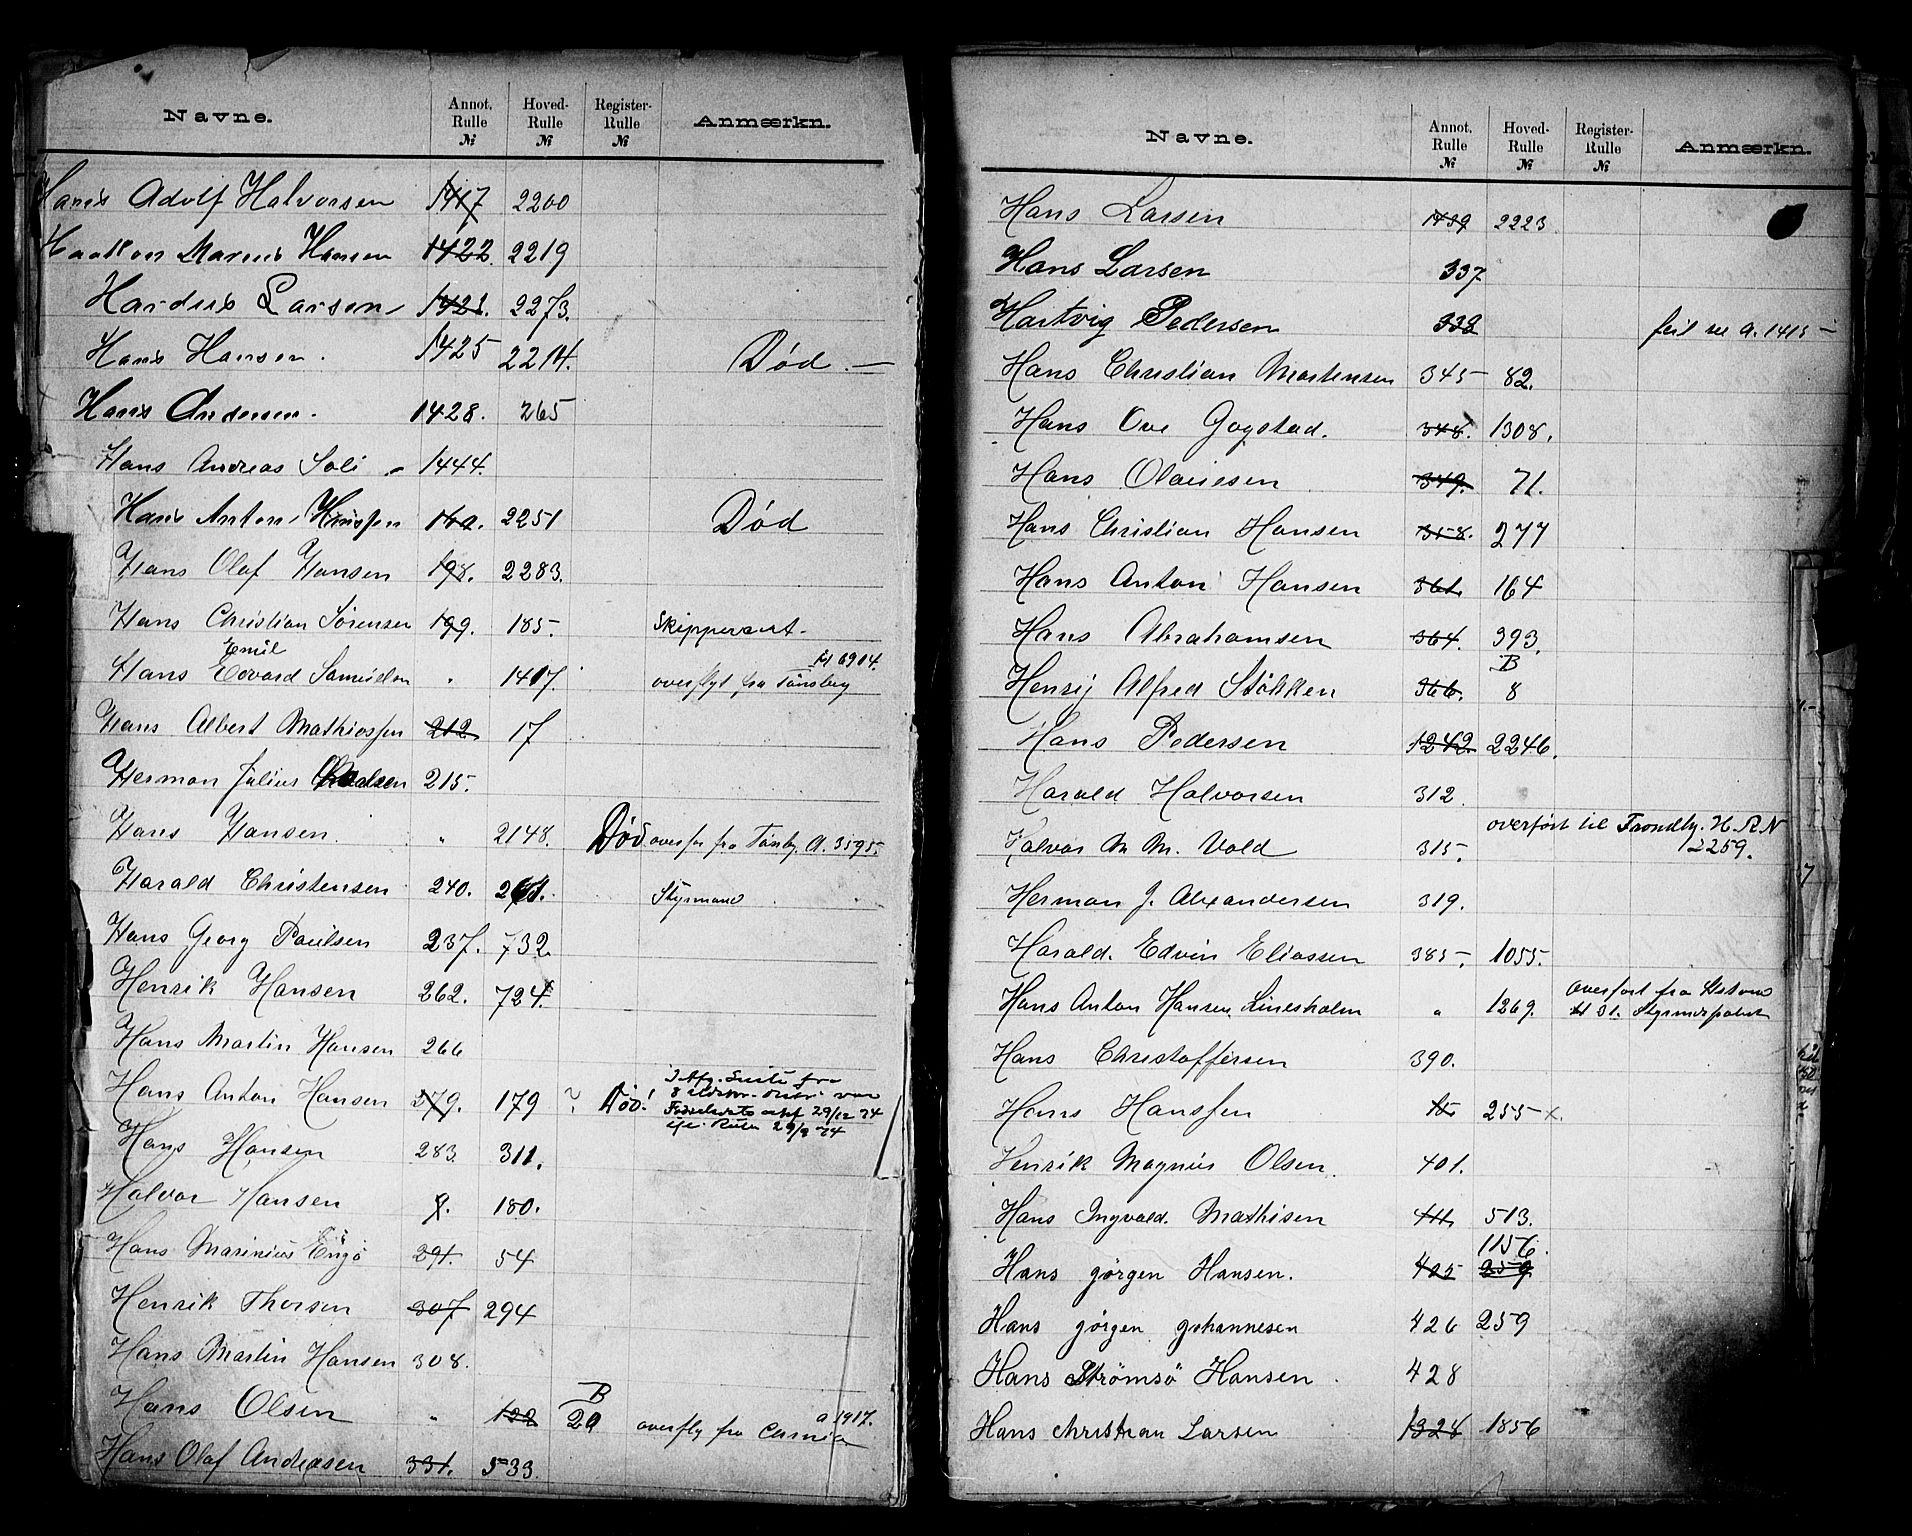 Navne. Annot. Rulle № Hoved-Rulle № Register-Rulle № Anmærkn.
Hans Adolf Halvorsen 1417 2200
Haakon Marius Hansen 1422 2219
Larsen 1421. 2273.
Hans Hansen. 1425 2214. Død. —
Hans Andersen. 1428. 265
Hans Andreas Soli 1444.
Hans Anton 2251 Død
Hans Olaf Hansen 198. 2283.
Hans Christian Sørensen 199. 185.
Emil H 6904.
Hans Edvard Samuelsen " 1417. overflyt fra Tønsberg
Hans Albert Mathiassen 212 17
Herman Julius 215.
Hans Hansen. " 2148. Død overfør fra Tønsbg. A. 3595.
Harald Christensen 240. Styrmand
Hans Georg Paulsen 237. 732
Henrik Hansen 262. 724
Hans Martin Hansen 266
Hans Anton Hansen 279. 179 ? Død!
29/12 34
29/9 34
Hans Hansen 283. 311.
Halvor Hansen 9. 180.
Hans Marinius Engø 291. 54
Henrik Thorsen 307 294
Hans Martin Hansen 308.
B a 1917.
Hans Olsen " 122 20 overfly fra
Hans Olaf Andreasen 331. 533.
Navne. Annot. Rulle № Hoved-Rulle № Register-Rulle № Anmærkn.
Hans Larsen 1439 2223
Hans Larsen 337
Hartvig Pedersen 338 feil se a. 1415 —
Hans Christian Mortensen 345 82.
Hans Ove Gogstad. 348. 1308.
Hans Olausen 349. 71.
Hans Christian Hansen 358. 277
Hans Anton Hansen 361. 164
Hans Abrahamsen 364. 393.
B
Henrij Alfred Støkken 366. 8
Hans Pedersen 1242. 2246.
Harald Halvorsen 312.
overført til Trondhj. H. R. N
Halvor M M. Vold 315. 12259.
Herman J. Alexandersen 319.
Harald. Edvin Eliassen 385. 1055.
overført fra
Hans Anton Hansen Linesholm " 1269. 31.
Hans Christoffersen 390.
Hans Hanssen 15 255 x.
Henrik Magnus Olsen. 401.
Hans Ingvald. Mathisen 411. 513.
1156.
Hans Jørgen Hansen. 425 259
Hans Jørgen Johannesen 426 259
Hans Strømsø Hansen. 428
Hans Christian Larsen 1324 1856